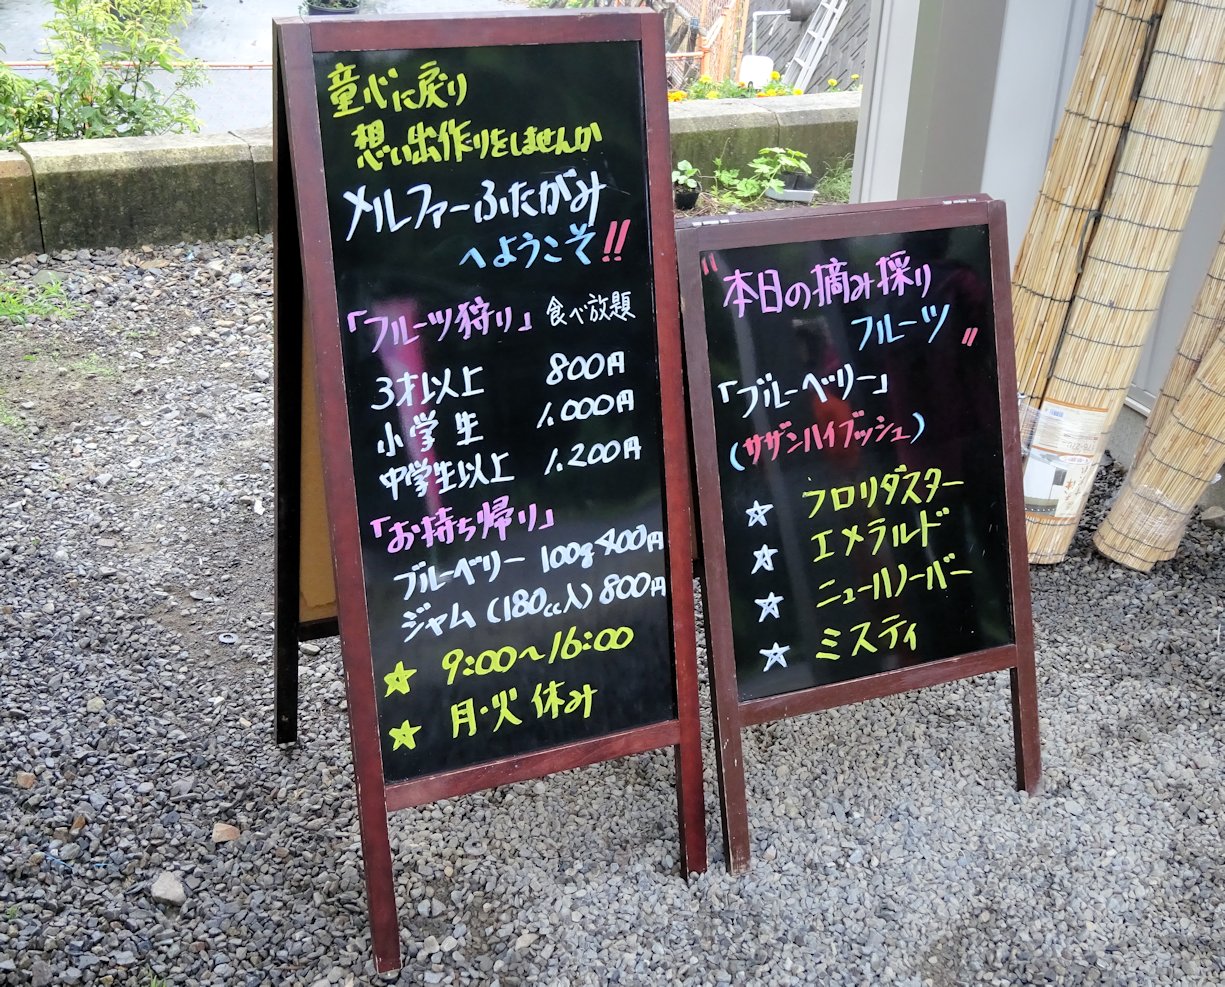 童心に戻り
想い出作りをしませんか
メルファーふたがみ
へようこそ!!
「フルーツ狩り」 食べ放題
3才以上 800円
小学生 1,000円
中学生以上 1,200円
「お持ち帰り」
ブルーベリー 100g 400円
ジャム (180cc入) 800円
☆ 9:00~16:00
☆ 月・火 休み
"本日の摘み採り
フルーツ"
「ブルーベリー」
(サザンハイブッシュ)
☆ フロリダスター
☆ エメラルド
☆ ニューハノーバー
☆ ミスティ